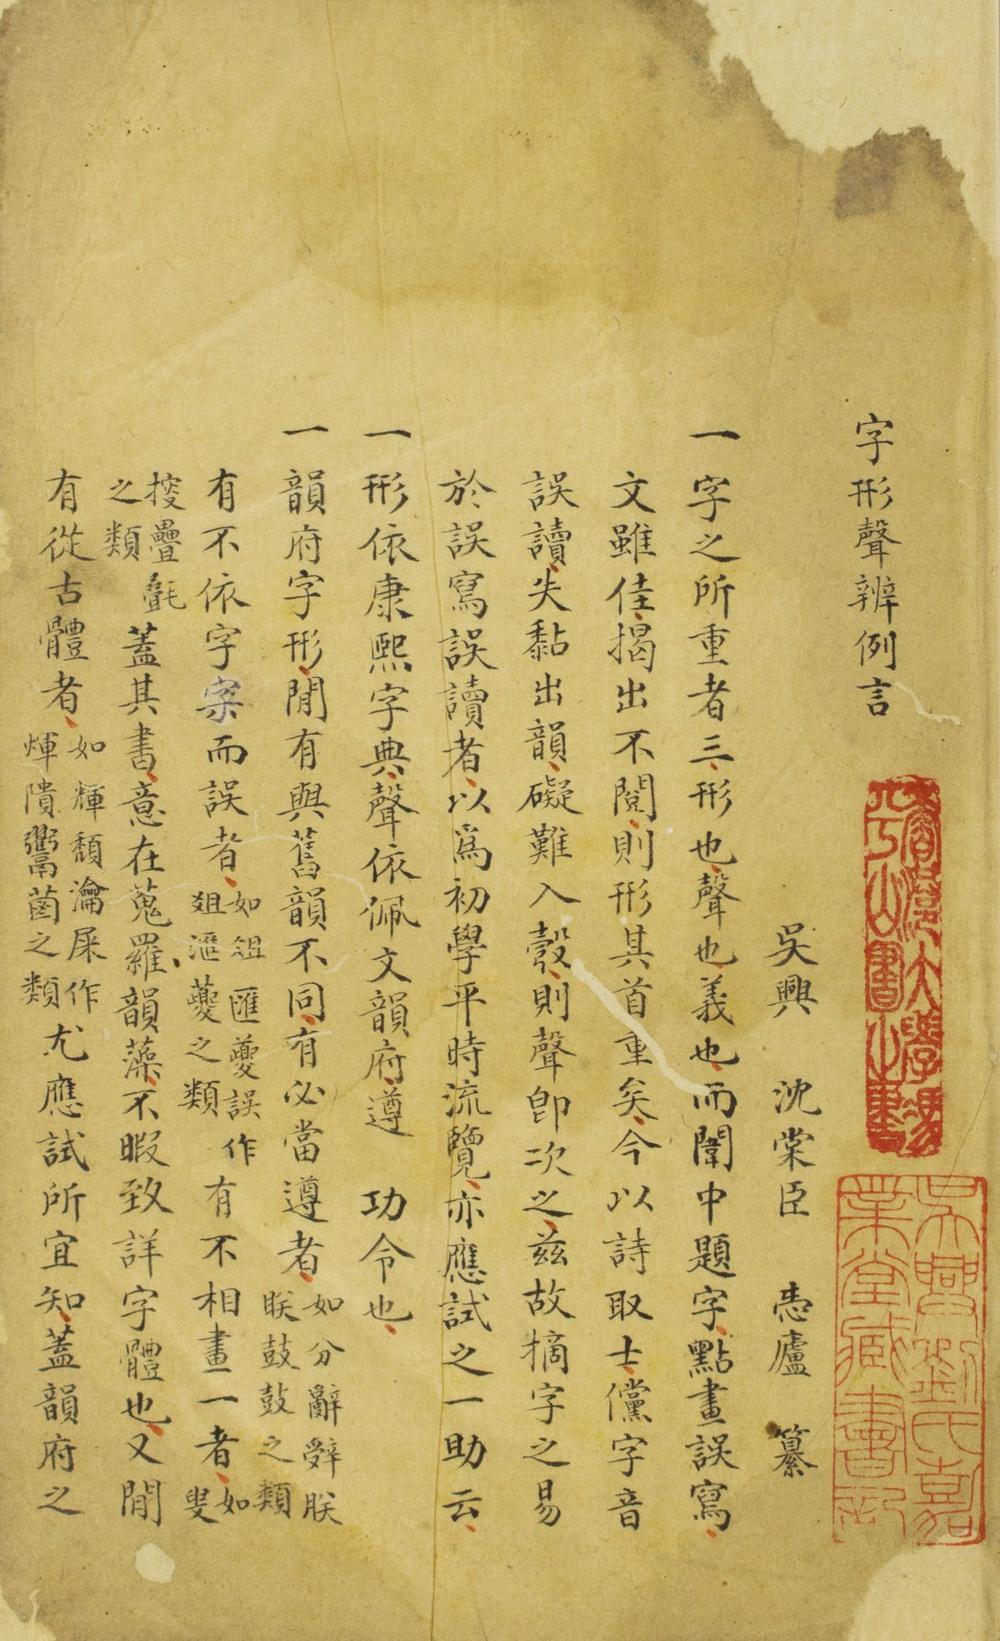 字形聲辨例言
吳興 沈棠臣 恚廬 纂
一字之所重者三形也聲也義也而闈中題字點畫誤寫
文雖佳揭出不閱則形其首重矣今以詩取士儻字音
誤讀失黏出韻礙難入彀則聲卽次之茲故摘字之易
於誤寫誤讀者以爲初學平時流覽亦應試之一助云
一形依康熙字典聲依佩文韻府遵 功令也
一韻府字形閒有與舊韻不同有必當遵者如分辭辤朕
䑣鼓皷之類
有不依字案而誤者如俎匯夔誤作
爼滙䕫之類有不相畫一者如叟
挍疊㲲
之類蓋其書意在蒐羅韻藻不暇致詳字體也又閒
有從古體者如輝頹瀹屎作
煇隤鬻𦳊之類尤應試所宜知蓋韻府之
吳興劉氏嘉
業堂藏書記